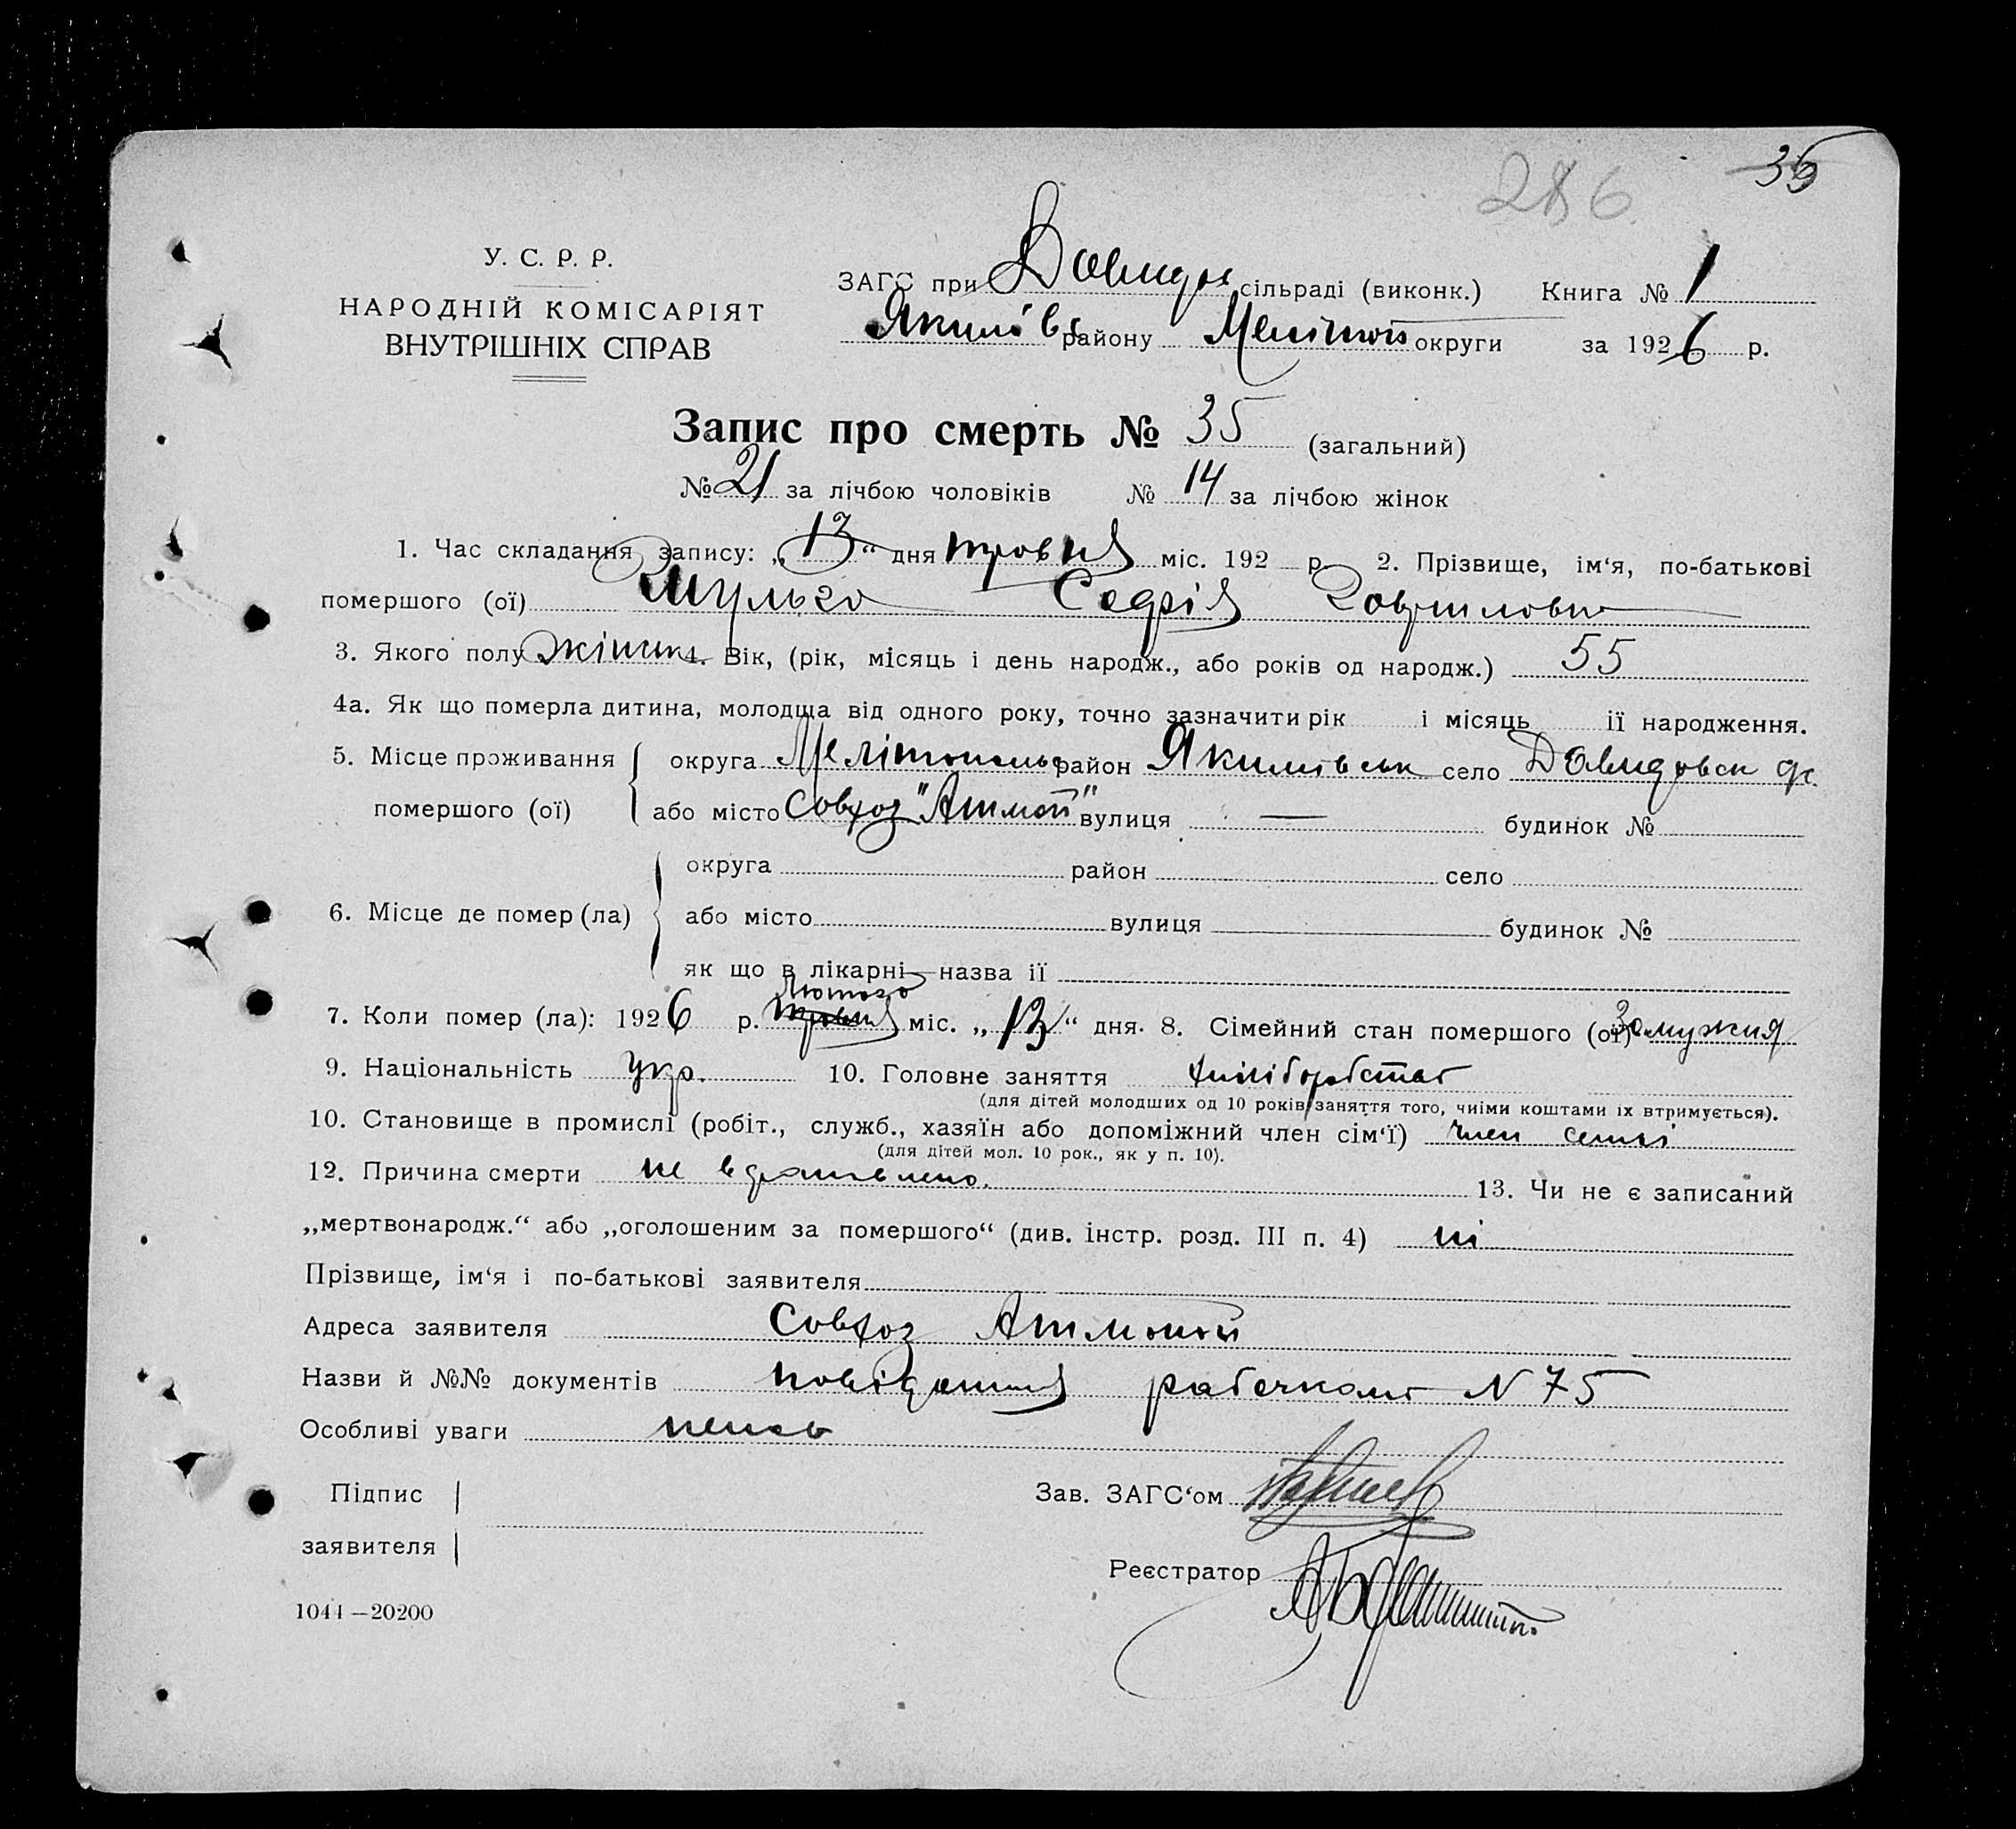 35
286
У. С. Р. Р.
НАРОДНІЙ КОМІСАРІЯТ
ВНУТРІШНІХ СПРАВ
ЗАГС при Давидов сільраді (виконк.) Книга № 1
Якимівс району Мелітоп округи за 1926 р.
Запис про смерть № 35 (загальний)
№ 21 за лічбою чоловіків № 14 за лічбою жінок
1. Час складання запису: „13“ дня травня міс. 192 р. 2. Прізвище, ім‘я, по-батькові
помершого (ої) Шульга Софія Гавриловна
3. Якого полу жіноч 4. Вік, (рік, місяць і день народж., або років од народж.) 55
4а. Як що померла дитина, молодща від одного року, точно зазначити рік і місяць її народження.
5. Місце проживання округа Мелітопольс район Якимівськ село Давидовск
помершого (ої) або місто совхоз "Атмой" вулиця — будинок №
округа район село
6. Місце де помер (ла) або місто вулиця будинок №
як що в лікарні—назва її
лютого
7. Коли помер (ла): 1926 р. травня міс. „13“ дня. 8. Сімейний стан помершого (ої) замужня
9. Національність укр. 10. Головне заняття
(для дітей молодших од 10 років заняття того, чиїми коштами їх втримується).
10. Становище в промислі (робіт., служб., хазяїн або допоміжний член сім‘ї) член семьі
(для дітей мол. 10 рок., як у п. 10).
12. Причина смерти не вдановлено. 13. Чи не є записаний
„мертвонародж.“ або „оголошеним за помершого“ (див. інстр. розд. III п. 4) ні
Прізвище, ім‘я і по-батькові заявителя
Адреса заявителя Совхоз Атмокой
Назви й №№ документів повідання рабочкома N 75
Особливі уваги немає
Підпис
заявителя
Зав. ЗАГС‘ом
Реєстратор
1044—20200